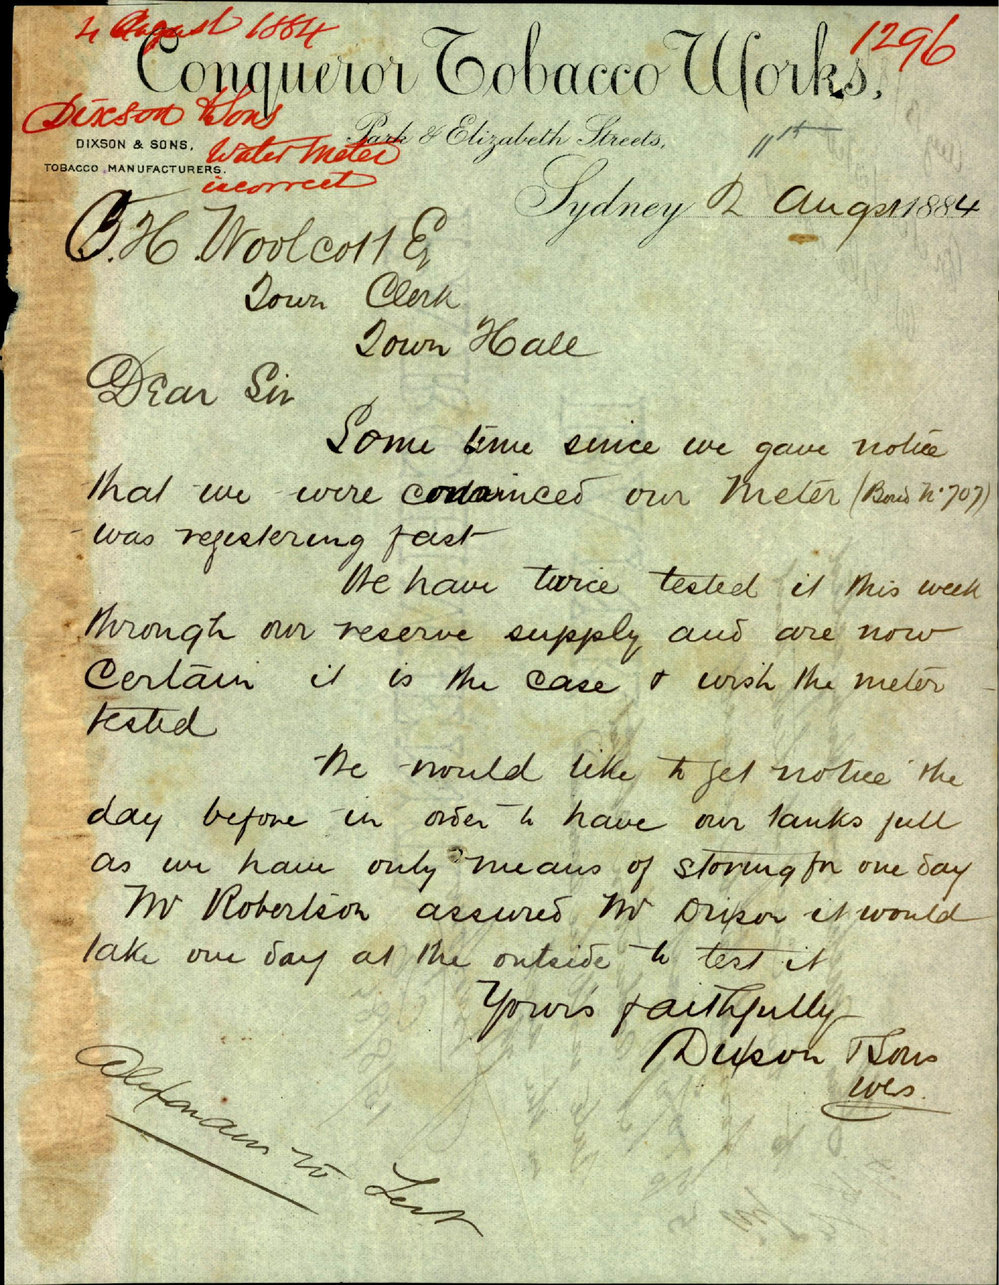 4 August 1884
1296
Conqueror Tobacco Works,
Dixson & Sons
Water Meter
incorrect
DIXSON & SONS,
TOBACCO MANUFACTURERS.
Park & Elizabeth Streets,
11th
Sydney 2 Augst 1884
C. H. Woolcott Eq
Town Clerk
Town Hall
Dear Sir
Some time since we gave notice
that we were convinced our Meter (Bord No 707)
was registering fast
We have twice tested it this week
through our reserve supply and are now
Certain it is the case & wish the meter
tested
We would like to get notice the
day before in order to have our tanks full
as we have only means of storing for one day
Mr Robertson assured Mr Dixson it would
take one day at the outside to test it
Yours faithfully
Dixson & Sons